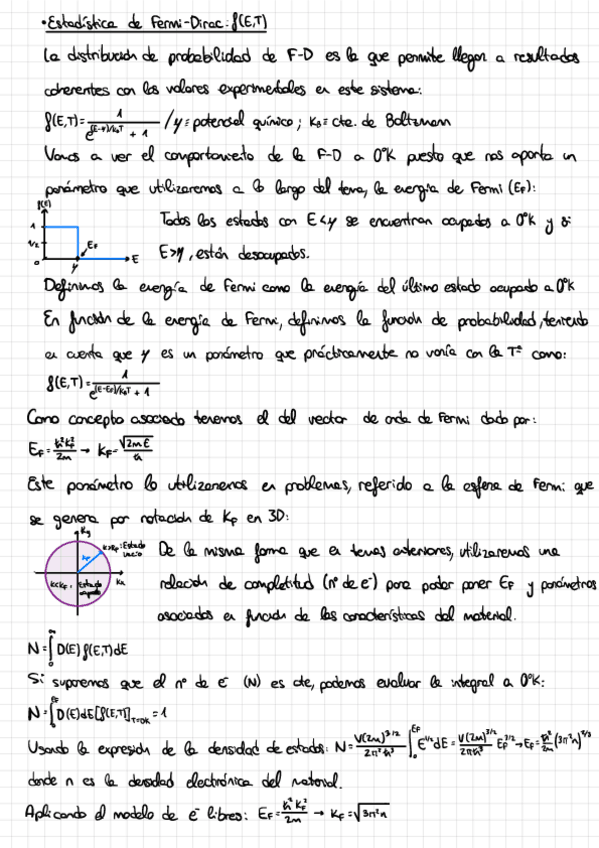 • Estadística de Fermi-Dirac: f(E,T)
La distribución de probabilidad de F-D es la que permite llegar a resultados
coherentes con los valores experimentales en este sistema:
f(E,T) = 1 / (e^((E-μ)/k_BT) + 1) / μ ≡ potencial químico ; K_B ≡ cte. de Boltzmann
Vamos a ver el comportamiento de la F-D a 0°K puesto que nos aporta un
parámetro que utilizaremos a lo largo del tema, la energía de Fermi (E_F):
f(E)
1
1/2
0
μ
E_F
E
Todos los estados con E<μ se encuentran ocupados a 0°K y si
E>μ, están desocupados.
Definimos la energía de Fermi como la energía del último estado ocupado a 0°K
En función de la energía de Fermi, definimos la función de probabilidad, teniendo
en cuenta que μ es un parámetro que prácticamente no varía con la Tª como:
f(E,T) = 1 / (e^((E-E_F)/k_BT) + 1)
Como concepto asociado tenemos el del vector de onda de Fermi dado por:
E_F = ħ²k_F² / 2m → k_F = √(2mE) / ħ
Este parámetro lo utilizaremos en problemas, referido a la esfera de Fermi que
se genera por rotación de K_F en 3D:
K_y
K>K_F: Estado
vacío
K_F
K<K_F: Estado
ocupado
K_x
De la misma forma que en temas anteriores, utilizaremos una
relación de completitud (nº de e⁻) para poder poner E_F y parámetros
asociados en función de las características del material.
N = ∫₀^∞ D(E) f(E,T) dE
Si suponemos que el nº de e⁻ (N) es cte, podemos evaluar la integral a 0°K:
N = ∫₀^(E_F) D(E) dE [f(E,T)]_(T=0K) = 1
Usando la expresión de la densidad de estados: N = V(2m)^(3/2) / 2π²ħ³ ∫₀^(E_F) E^(1/2) dE = V(2m)^(3/2) / 2πħ³ E_F^(3/2) → E_F = ħ²/2m (3π²n)^(2/3)
donde n es la densidad electrónica del material.
Aplicando el modelo de e⁻ libres: E_F = ħ²k_F² / 2m → K_F = √(3π²n)